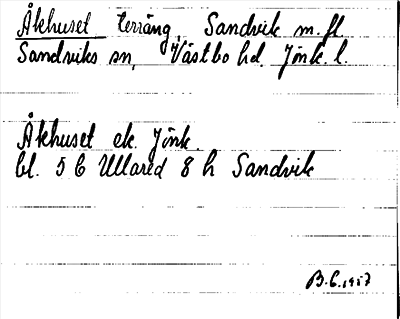 Åkhuset terräng, Sandvik m.fl
Sandviks sn, Västbo hd. Jönk. l.
Åkhuset ek. Jönk.
bl. 5 C Ullared 8 h Sandvik
B.C. 1957